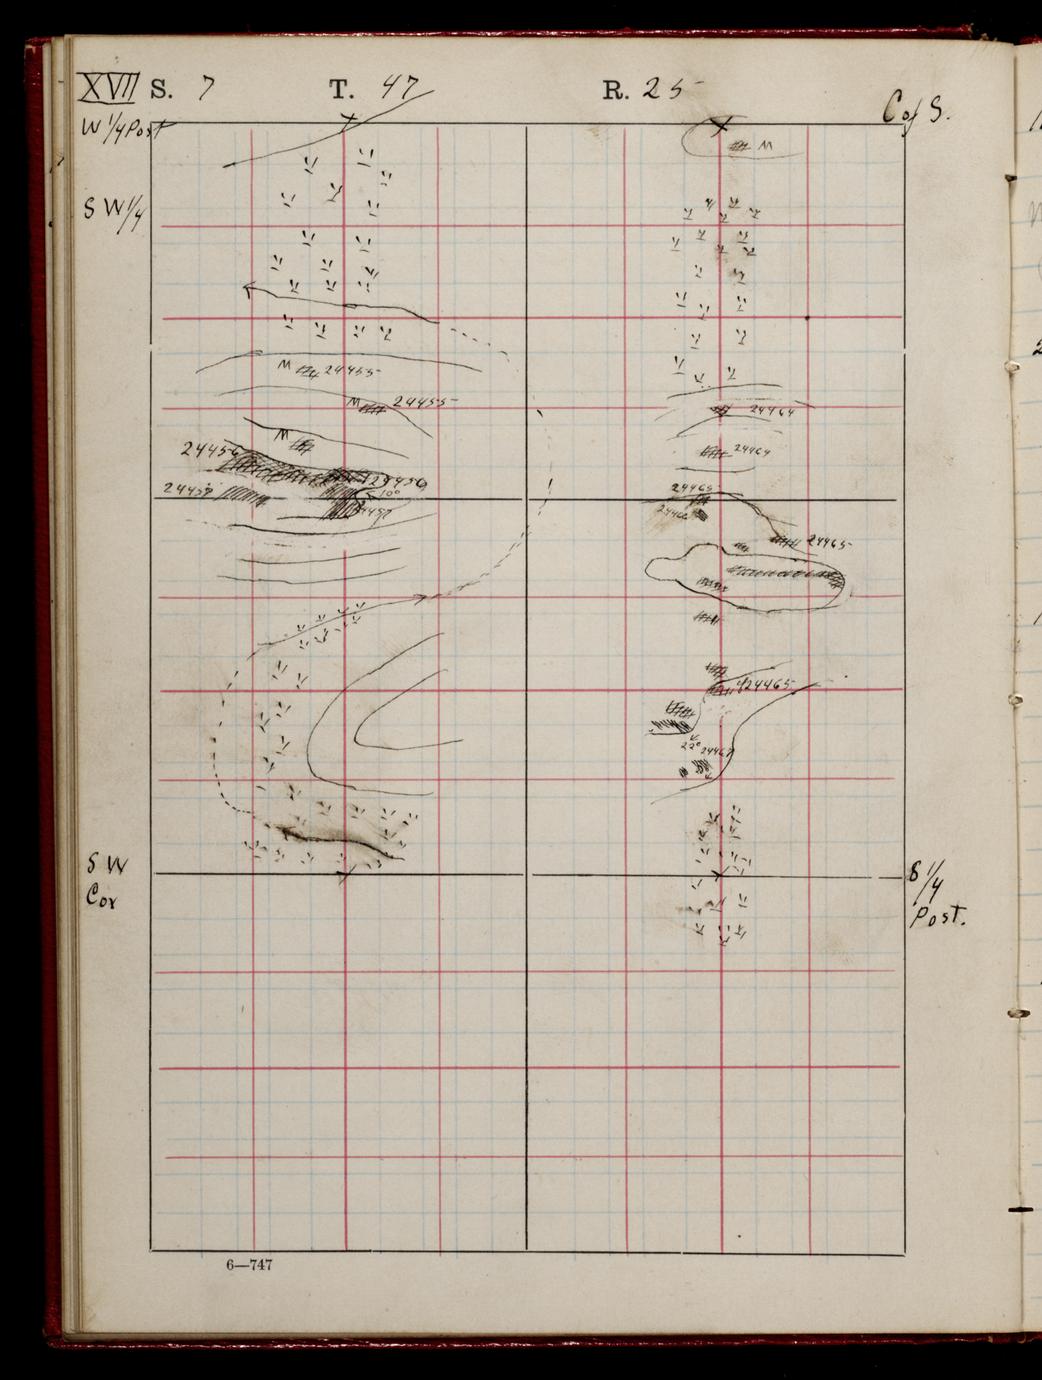 XVII S. 7 T. 47 R. 25
W 1/4 Post
C of S.
M
S W 1/4
M 24455
M 24455
24464
M
24464
24456
24456
24457
10°
24457
24465
24466
24465
24465
22°
24467
S W
Cor
S 1/4
Post.
6—747